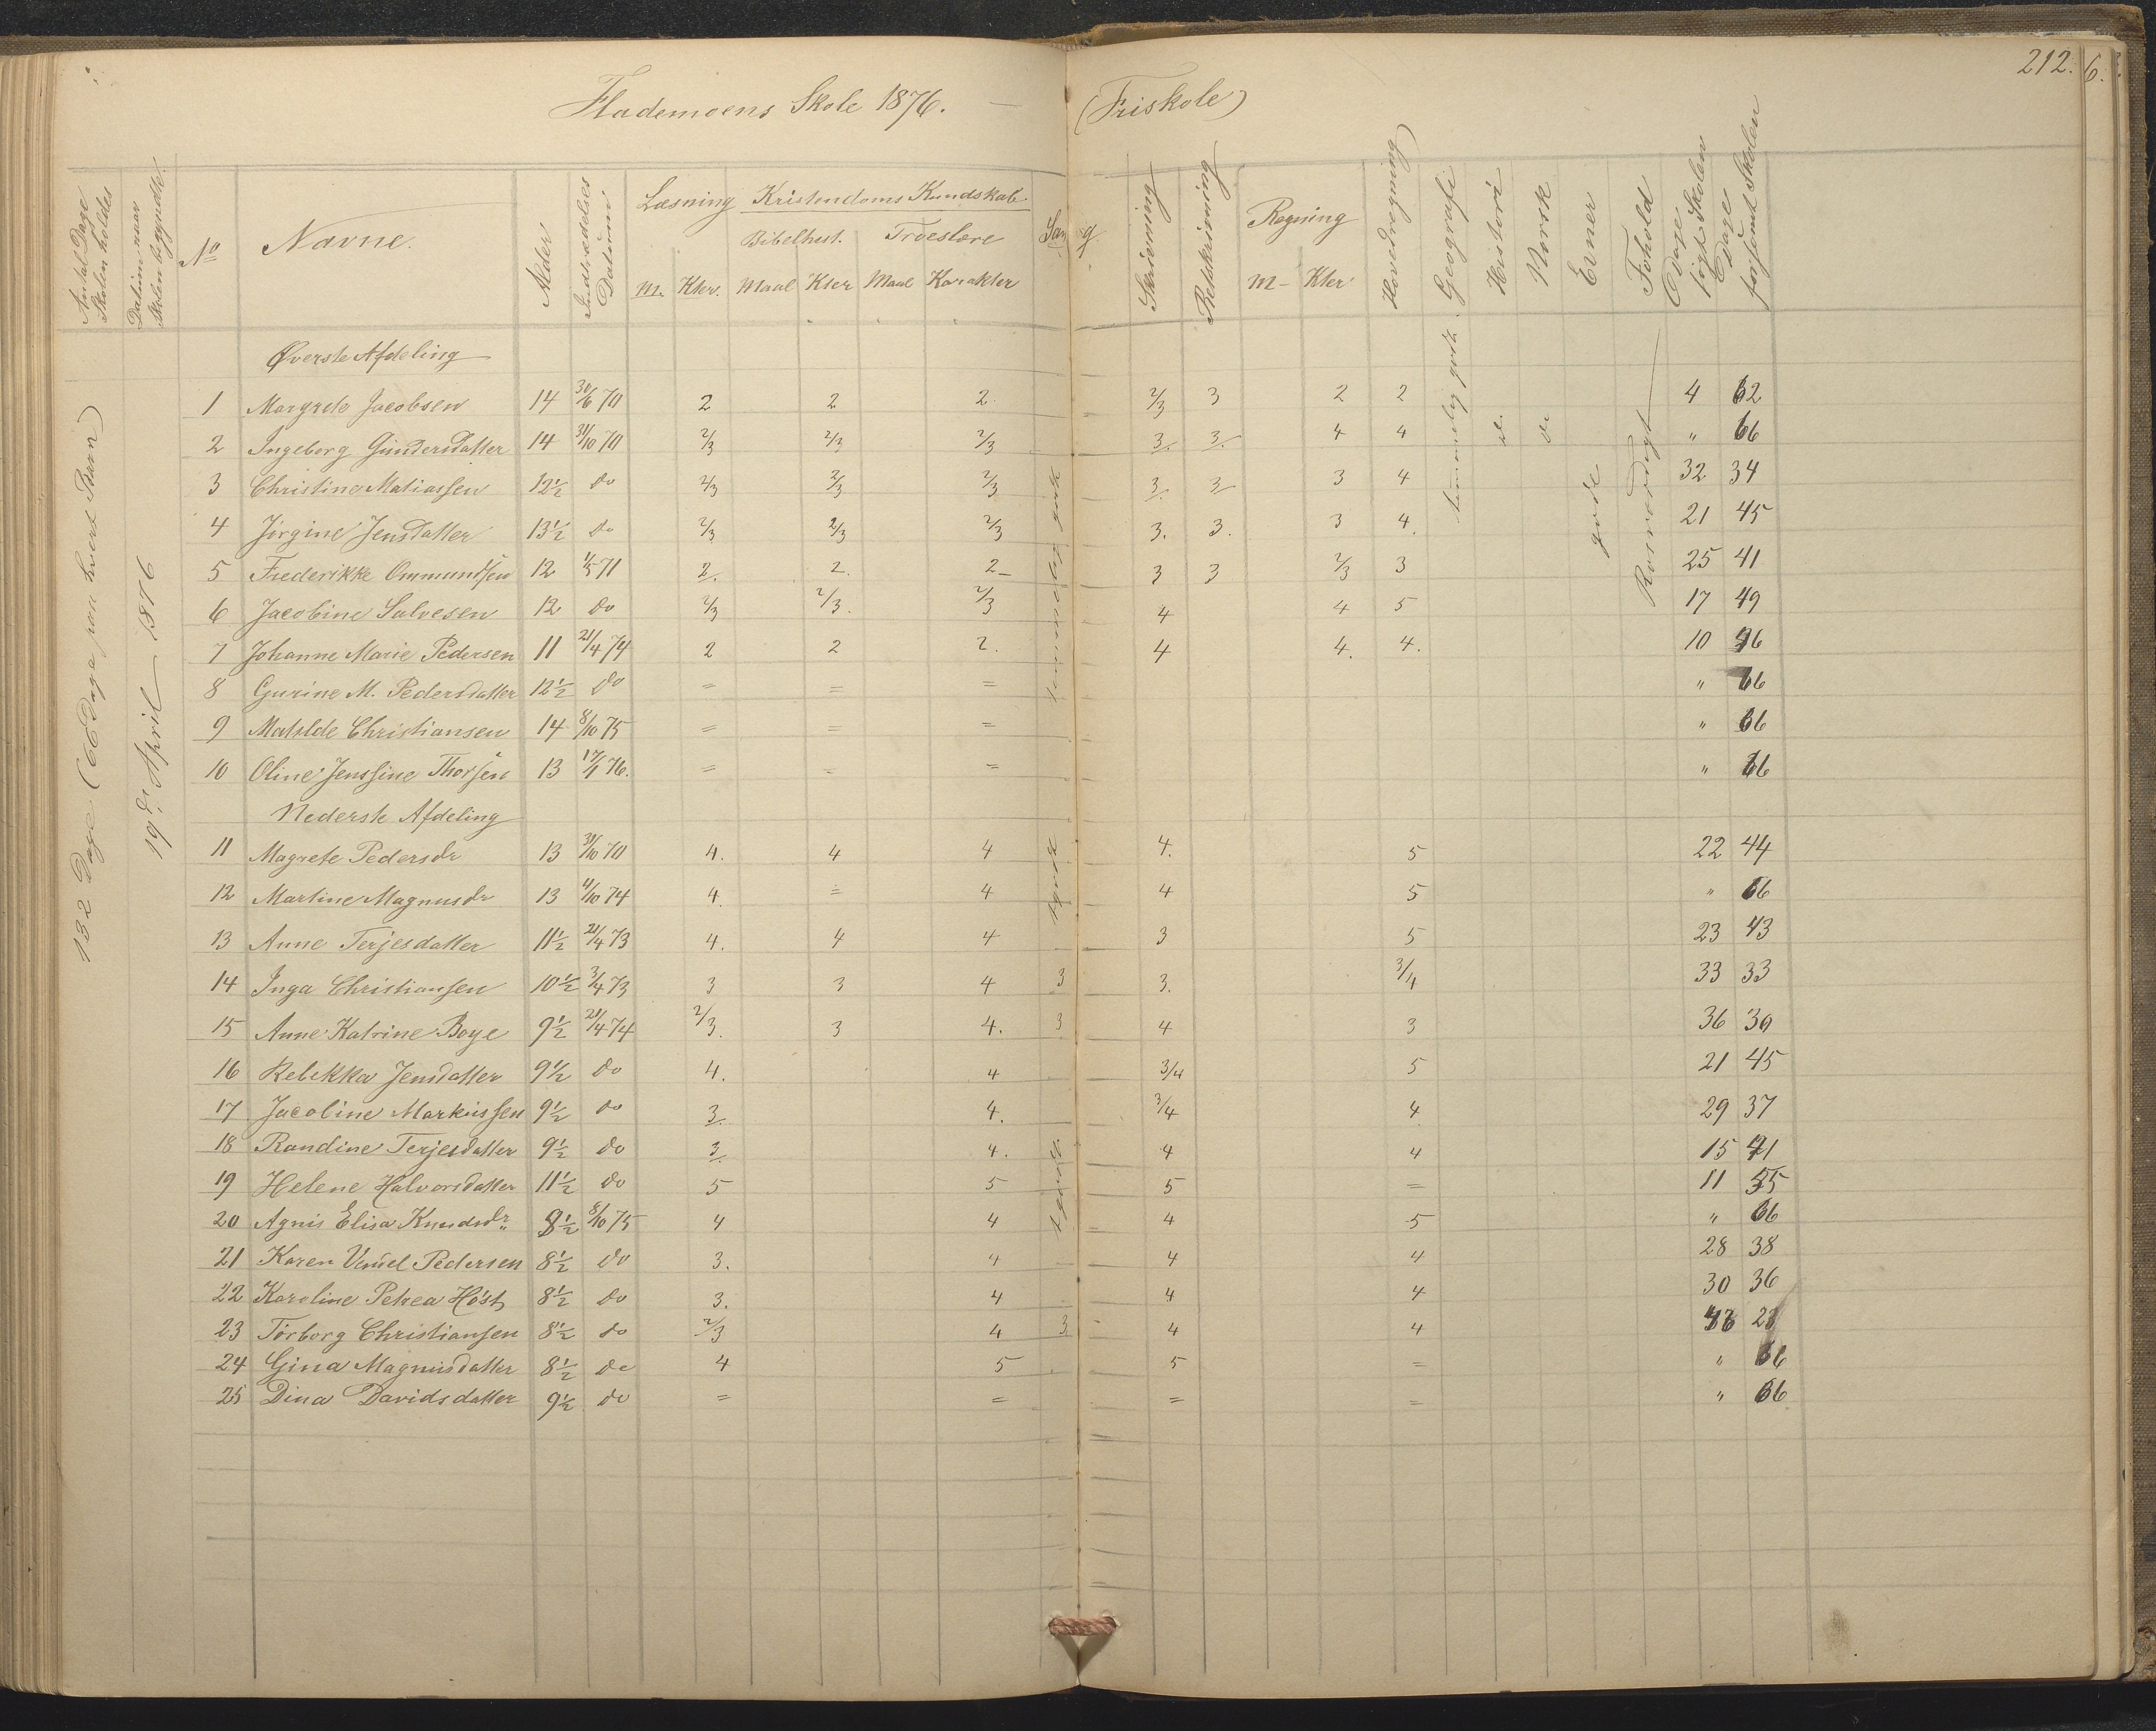 212. 6.
Flademoens Skole 1876. — (Friskole)
Antal Dage Skolen holdes
Datum naar Skolen begyndte.
No Navne. Alder Indtrædelses Datum Læsning Kristendoms Kundskab Sang Skrivning Retskrivning Regning Hovedregning Geografi Histori Norsk Evner Fohold Dage søgt Skolen Dage forsømt Skolen
Bibelhist. Troeslære
M. Kter. Maal Kter Maal Karakter M- Kter
132 Dage (66 Dage paa hvert Barn)
19de April 1876
temmelig godt
temmelig godt do do
gode
Rosværdigt
Øverste Afdeling
1 Margrete Jacobsen 14 30/6 70 2 2 2. 2/3 3 2 2 4 62
2 Ingeborg Gundersdatter 14 31/10 70 2/3 2/3 2/3 3. 3. 4 4 " 66
3 Christine Matiassen 12½ do 2/3 2/3 2/3 3. 3 3 4 32 34
4 Jørgine Jensdatter 13½ do 2/3 2/3 2/3 3. 3. 3 4. 21 45
5 Frederikke Ommundsen 12 1/5 71 2. 2. 2 3 3 2/3 3 25 41
6 Jacobine Salvesen 12 do 2/3 2/3. 2/3 4 4 5 17 49
7 Johanne Marie Pedersen 11 21/4 74 2 2 2. 4 4. 4. 10
8 Gurine M. Pedersdatter 12½ do = = = " 66
9 Matilde Christiansen 14 8/10 75 = = = " 66
10 Oline Jenssine Thorsen 13 76. = = = " 66
Nederste Afdeling
11 Magrete Pedersdr 13 31/10 70 4. 4 4 4. 5 22 44
12 Martine Magnusdr 13 11/10 74 4. = 4 4 5 " 66
13 Anne Terjesdatter 11½ 21/4 73 4. 4 4 3 5 23 43
14 Inga Christiansen 10½ 3/4 73 3 3 4 3 3. 3/4 33 33
15 Anne Katrine Boye 9½ 21/4 74 2/3. 3 4. 3 4 3 36 30
16 Rebekka Jensdatter 9½ do 4. 4 3/4 5 21 45
17 Jacoline Markussen 9½ do 3. 4. 3/4 4 29 37
18 Randine Terjesdatter 9½ do 3. 4. 4 4 15
19 Helene Halvorsdatter 11½ do 5 5 5 = 11 55
20 Agnis Elisa Knudsdr 8½ 8/10 75 4 4 4 5 " 66
21 Karen Pedersen 8½ do 3. 4 4 4 28 38
22 Karoline Petrea Høst 8½ do 3. 4 4 4 30 36
23 Torborg Christiansen 8½ do 2/3 4 3. 4 4
24 Gina Magnusdatter 8½ do 4 5 5 = " 66
25 Dina Davidsdatter 9½ do = = = = " 66